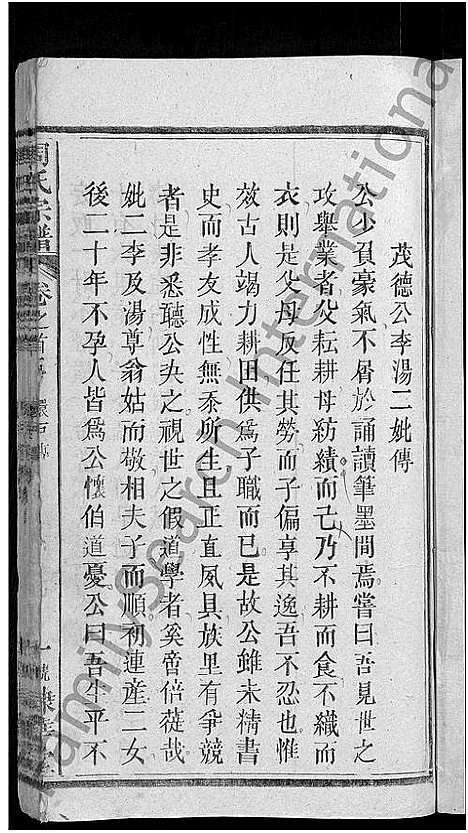 茂德公李湯二妣傳
公少負豪氣不屑於誦讀筆墨間焉嘗曰吾見世之
攻舉業者父耘耕母紡績而己乃不耕而食不織而
衣則是父母反任其勞而子偏享其逸吾不忍也惟
效古人竭力耕田供為子職而已是故公雖未精書
史而孝友成性無忝所生且正直夙具族里有爭競
者是非悉聽公决之視世之假道學者奚啻倍蓰哉
妣二李及湯尊翁姑而敬相夫子而順初連產二女
後二十年不孕人皆爲公懷伯道憂公曰吾生平不
周氏宗譜
卷之首
FamilySearch International